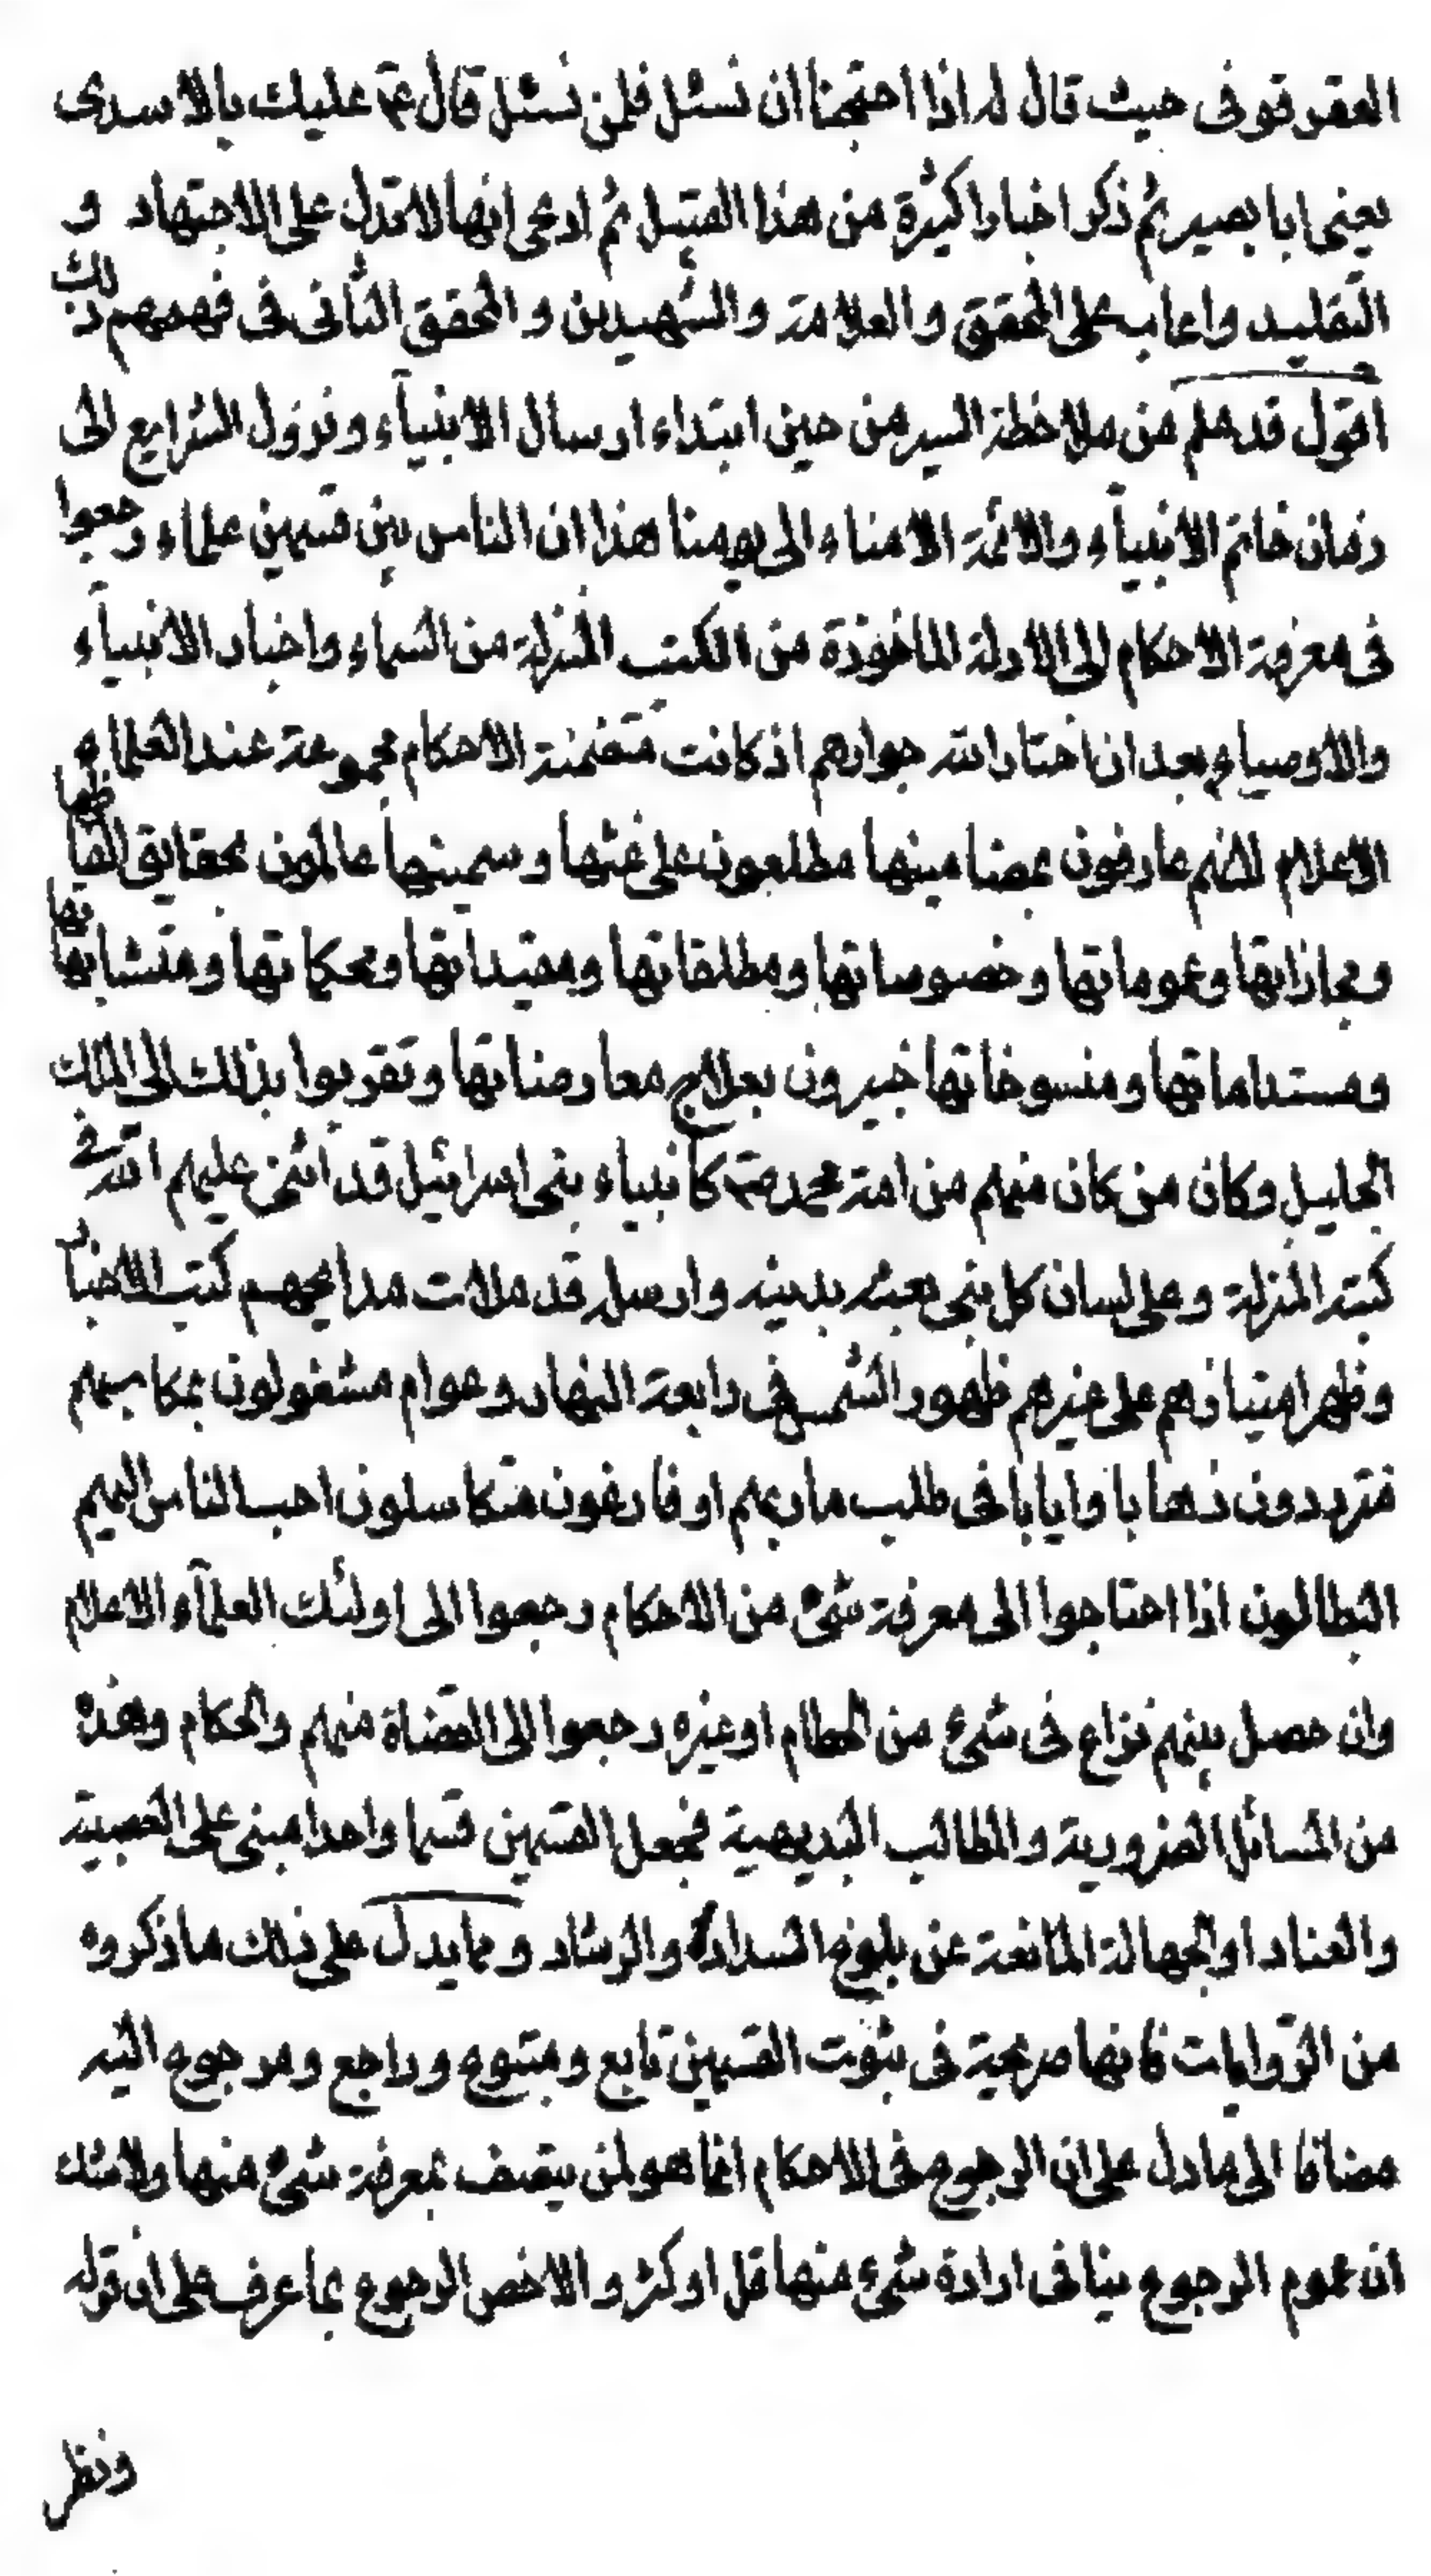 العقرقوفى حيث قال له اذا احتجنا ان نسئل فلمن نسئل قال عم عليك بالاسدى
يعنى ابا بصير ثم ذكر اخبارا كثيرة من هذا القبيل ثم ادعى انها لا تدل على الاجتهاد و
التقليد واعاب على المحقق والعلامة والشهيدين والمحقق الثانى فى فهمهم ذلك
اقول قد علم من ملاحظة السير من حين ابتداء ارسال الانبياء ونزول الشرايع الى
زمان خاتم الانبياء والائمة الامناء الى يومنا هذا ان الناس بين قسمين علماء رجعوا
فى معرفة الاحكام الى الادلة الماخوذة من الكتب المنزلة من السماء واخبار الانبياء
والاوصياء بعد ان اختار الله جوارهم اذ كانت متضمنة الاحكام مجموعة عند العلماء
الاعلام لانهم عارفون بمضامينها مطلعون على غثها وسمينها عالمون بحقايق الفاظها
ومجازاتها وعموماتها وخصوصاتها ومطلقاتها ومقيداتها ومحكماتها ومتشابهاتها
ومستداماتها ومنسوخاتها خبيرون بعلاج معارضاتها وتقربوا بذلك الى الملك
الجليل وكان من كان منهم من امة محمد ص كانبياء بنى اسرائيل قد اثنى عليهم الله فى
كتبه المنزلة وعلى لسان كل نبى بعثه بدينه وارسله قد ملات مدايحهم كتب الاخبار
وظهر امتيازهم على غيرهم ظهور الشمس فى رابعة النهار وعوام مشغولون بمكاسبهم
مترددون ذهابا وايابا فى طلب ماربهم او فارغون متكاسلون احب الناس اليهم
البطالون اذا احتاجوا الى معرفة شئ من الاحكام رجعوا الى اولئك العلماء الاعلام
وان حصل بينهم نزاع فى شئ من الحطام او غيره رجعوا الى القضاة منهم والحكام وهذه
من المسائل الضرورية والمطالب البديهية فجعل القسمين قسما واحدا مبنى على العصبية
والعناد او الجهالة المانعة عن بلوغ السداد والرشاد ومما يدل على ذلك ما ذكروه
من الروايات فانها صريحة فى ثبوت القسمين تابع ومتبوع وراجع ومرجوع اليه
مضافا الى ما دل على ان الرجوع فى الاحكام انما هو لمن يتصف بمعرفة شئ منها ولا شك
ان عموم الرجوع ينافى ارادة شئ منها قل او كثر والاخص الرجوع بما عرف على ان قوله
ونظر